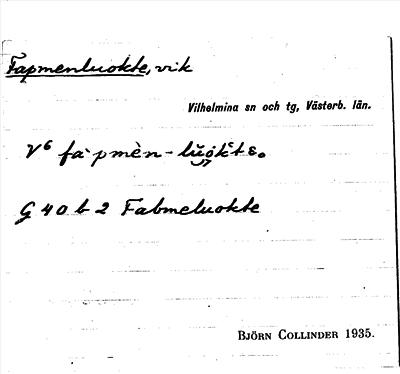 Fapmenluokte, vik
Vilhelmina sn och tg, Västerb. län.
V⁶ fàpmèn-lŭok̀tɛ.
G 40 b 2 Fabmeluokte
BJÖRN COLLINDER 1935.